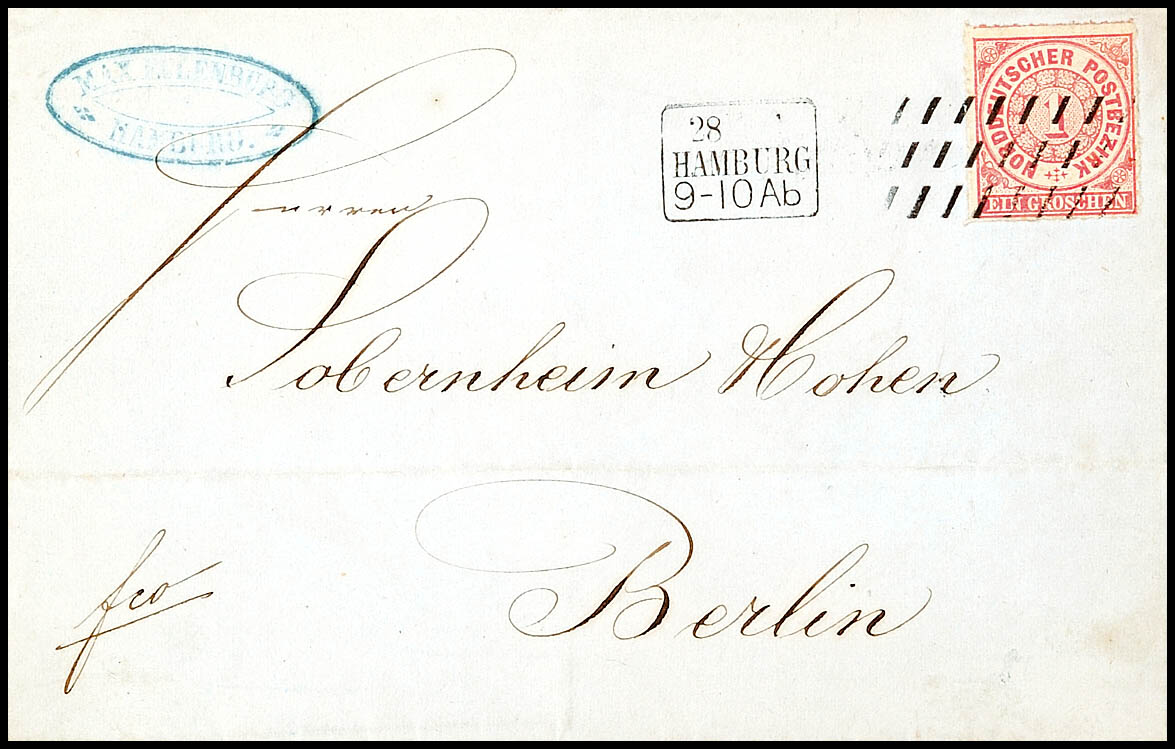 MAX ELLENBURG
HAMBURG.
28
HAMBURG
9-10 Ab
NORDDEUTSCHER POSTBEZIRK
1
EIN GROSCHEN
Herren
Sobernheim Hohen
Berlin
fco